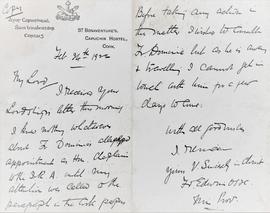 Copy
ST BONAVENTURE'S
CAPUCHIN HOSTEL,
CORK.
Feb. 1922
My Lord,
I received your
Lordship's letter this morning
I know nothing whatever
about Fr Dominic's alleged
appointment as Chaplain
to the I.R.A. until my
attention was called to the
paragraph in the Cork papers
Before taking any action in
the matter I wished to consult
Fr Dominic but as he is away
& travelling I cannot get in
touch with him for a few
days to come.
With all good wishes
I remain
yours V. Sincerely in Christ
Fr Edwin OSFC.
Min. Prov.